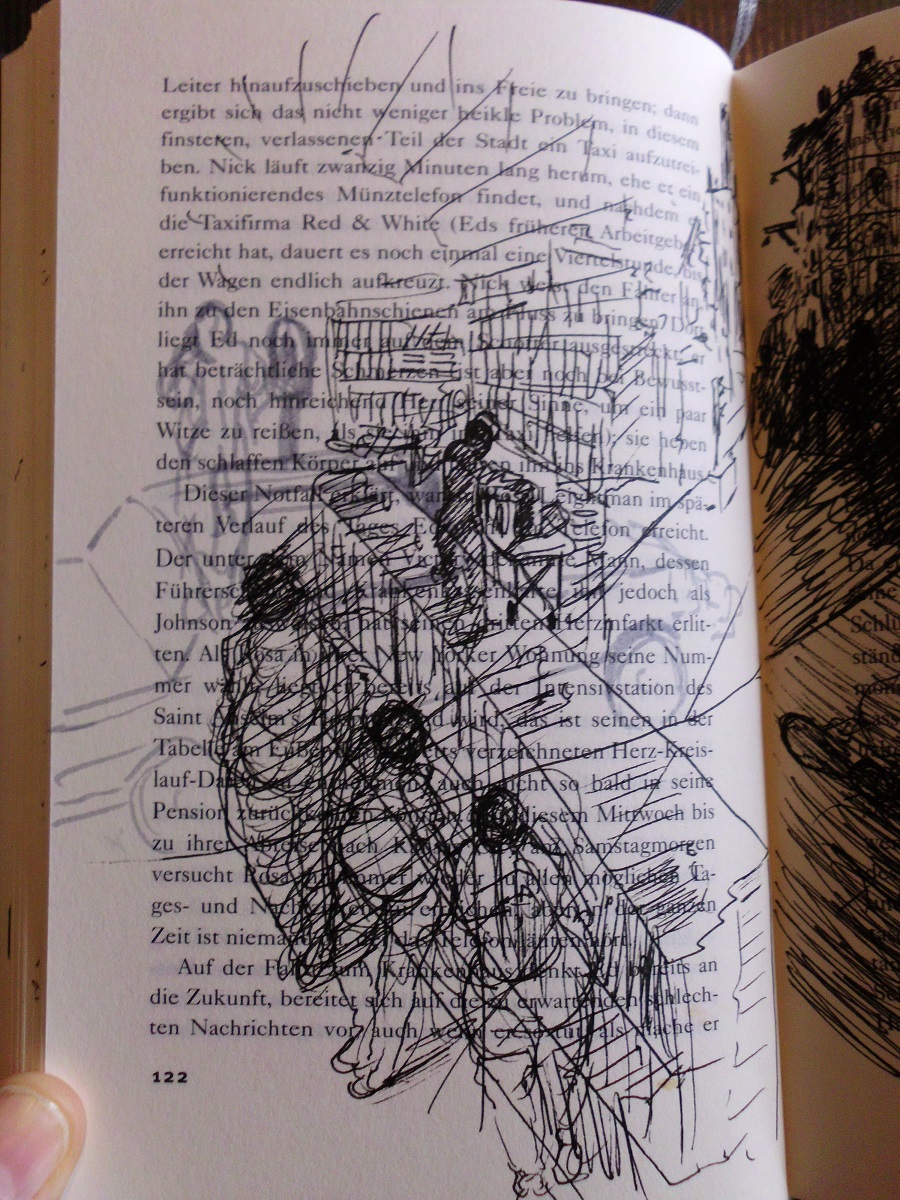 Leiter hinaufzuschieben und ins Freie zu bringen; dann
ergibt sich das nicht weniger heikle Problem, in diesem
finsteren, verlassenen Teil der Stadt ein Taxi aufzutrei-
ben. Nick läuft zwanzig Minuten lang herum, ehe er ein
funktionierendes Münztelefon findet, und nachdem er
die Taxifirma Red & White (Eds früheren Arbeitgeber)
erreicht hat, dauert es noch einmal eine Viertelstunde, bis
der Wagen endlich aufkreuzt. Nick weist den Fahrer an,
ihn zu den Eisenbahnschienen am Fluss zu bringen. Dort
liegt Ed noch immer auf dem Schotter ausgestreckt, er
hat beträchtliche Schmerzen (ist aber noch bei Bewusst-
sein, noch hinreichend Herr seiner Sinne, um ein paar
Witze zu reißen, als sie ihm ins Taxi helfen); sie heben
den schlaffen Körper auf und ihn ins Krankenhaus.
Dieser Notfall erklärt, warum Rosa Leightman im spä-
teren Verlauf des Tages Ed nicht am Telefon erreicht.
Der unter dem Namen Victory bekannte Mann, dessen
Führerschein und Krankenkassenkarte ihn jedoch als
Johnson ausweisen, hat seinen dritten Herzinfarkt erlit-
ten. Als Rosa in ihrer New Yorker Wohnung seine Num-
mer wählt, liegt er bereits auf der Intensivstation des
Saint Anselm's Hospital und wird, das ist seinen in der
Tabelle am Fußende des Betts verzeichneten Herz-Kreis-
lauf-Daten zu entnehmen, auch nicht so bald in seine
Pension zurückkehren können. Von diesem Mittwoch bis
zu ihrer Abreise nach Kansas City am Samstagmorgen
versucht Rosa ihn immer wieder zu allen möglichen Ta-
ges- und Nachtzeiten zu erreichen, aber in der ganzen
Zeit ist niemand da, der das Telefon läuten hört.
Auf der Fahrt zum Krankenhaus denkt Ed bereits an
die Zukunft, bereitet sich auf die zu erwartenden schlech-
ten Nachrichten vor, auch wenn er so tut, als mache er
122